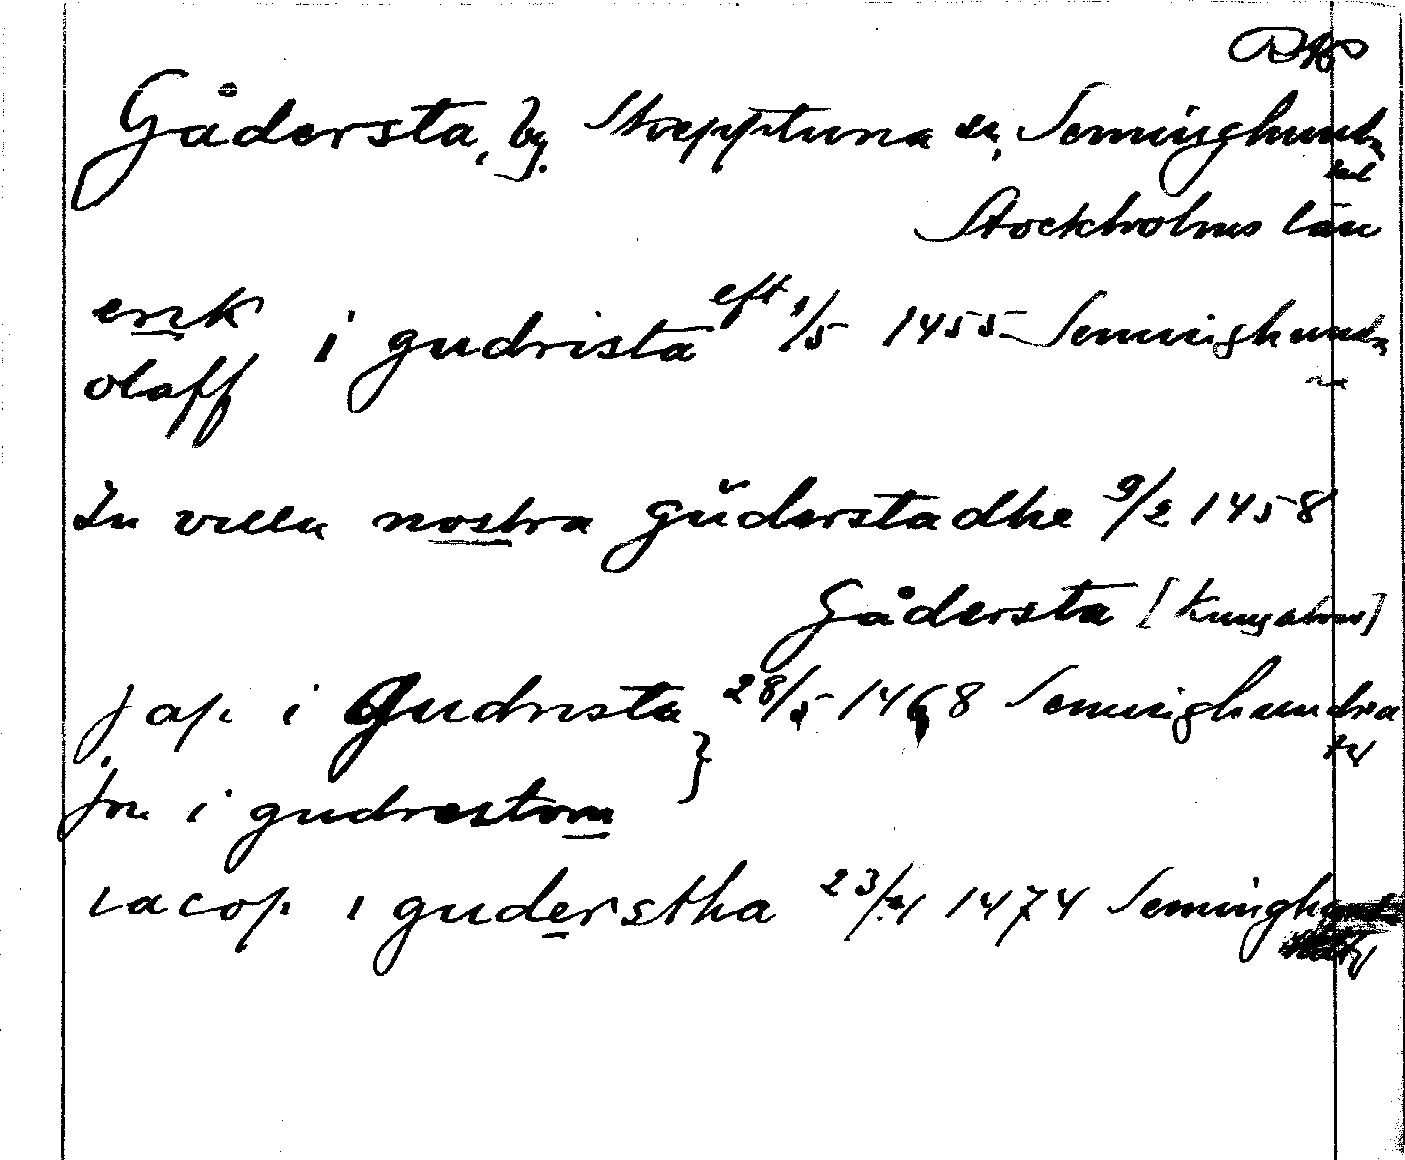 Gådersta, by. Skepptuna sn, Seminghundra
hd
Stockholms län
erik
olaff i gudrista eft 1/5 1455 Seminghundra
In villa nostra gůderstadhe 9/2 1458
Gådersta [Kungahus]
jap i Gudrista 28/5 1468 Seminghundra
ty
jon i gudrestom }
iacop i guderstha 23/4 1474 Seminghundra